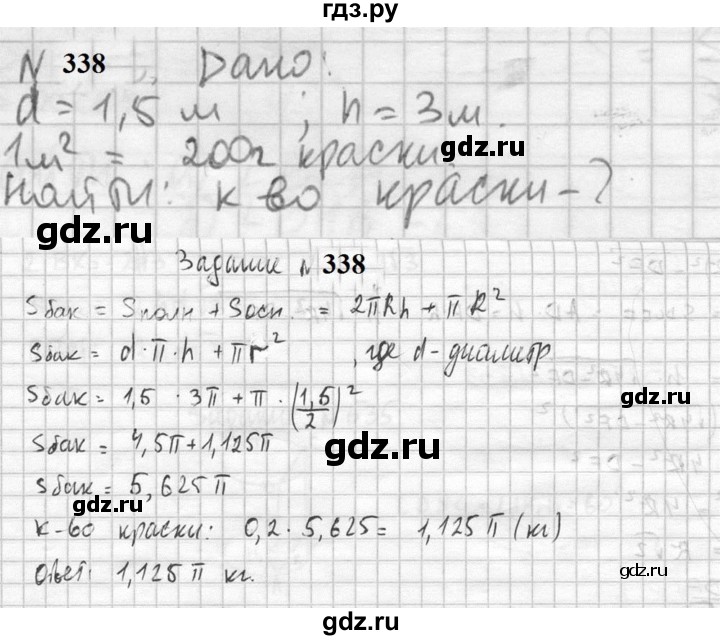 гдз.ру
N 338 Дано:
d = 1,5 м ; h = 3м.
1м² = 200г краски
Найти: к во краски - ?
gdz.ru
gdz.ru
Задание n 338
Sбак = Sполн + Sосн. = 2πRh + πR²
Sбак = d·π·h + πr² , где d-диаметр
Sбак = 1,5 · 3π + π · (1,5/2)²
gdz.ru
Sбак = 4,5π + 1,125π
gdz.ru
Sбак = 5,625π
gdz.ru
к-во краски: 0,2 · 5,625 = 1,125π (кг)
Ответ: 1,125π кг.
gdz.ru
gdz.ru